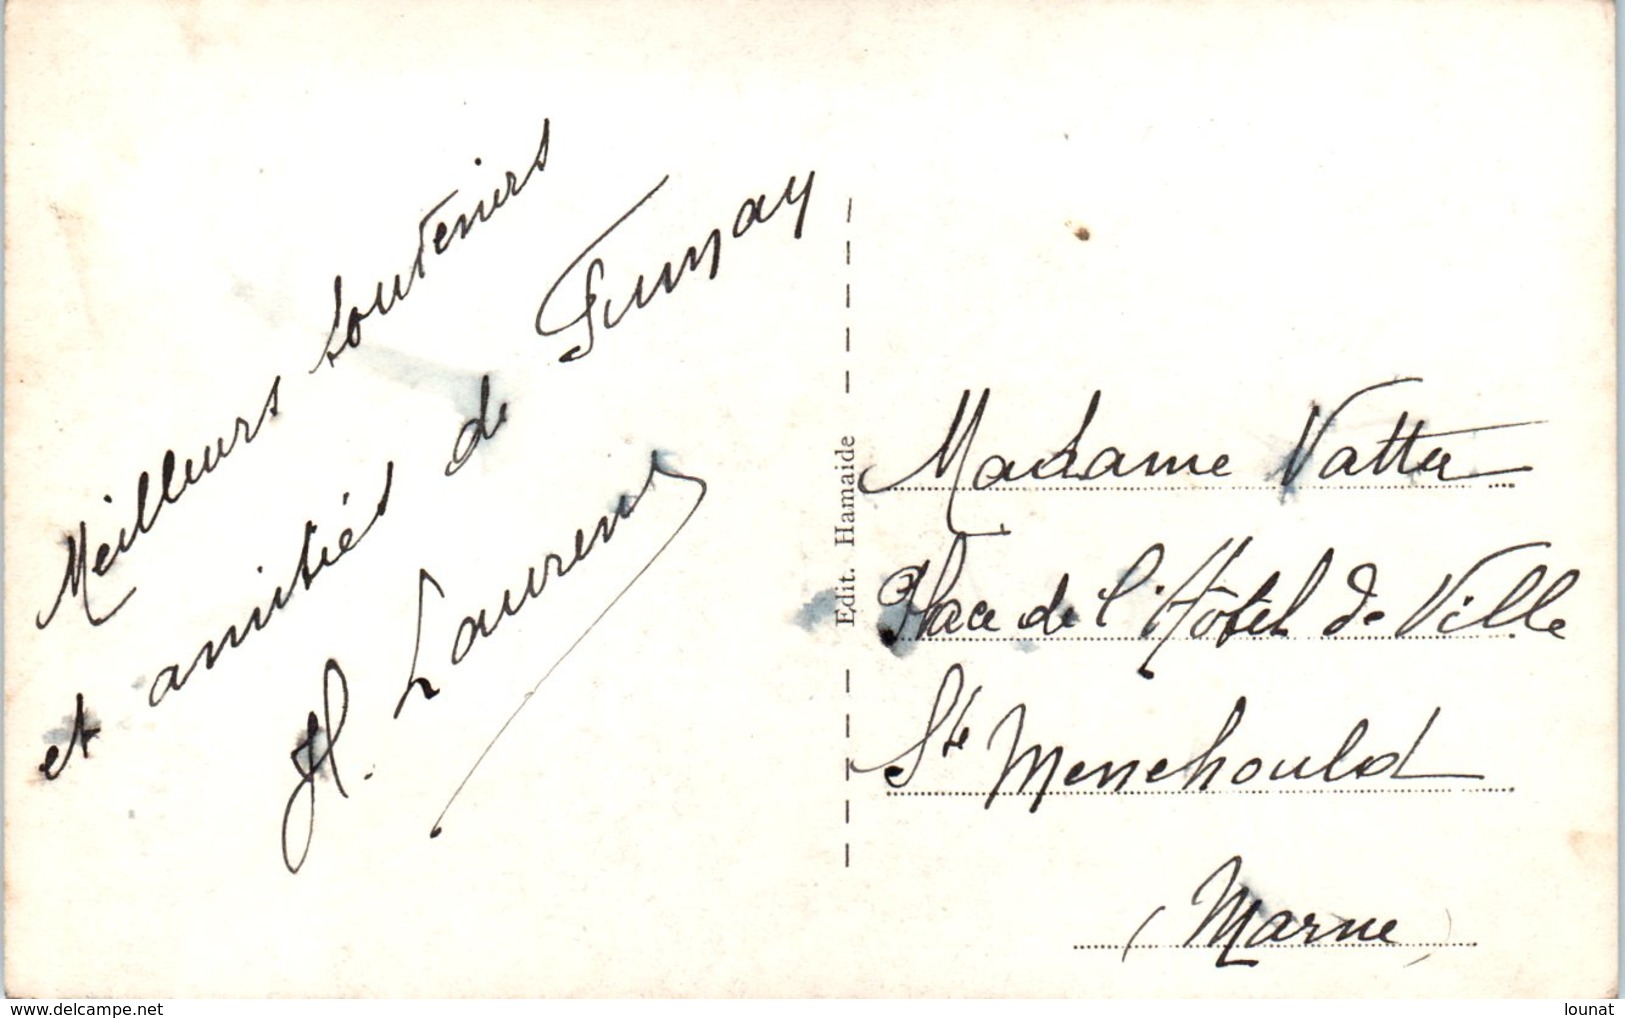 Meilleurs souvenirs
et amitiés de Fumay
H. Laurent
Edit. Hamaide
Madame Vatter
Place de l'Hôtel de Ville
Ste Menehould
(Marne)
www.delcampe.net
lounat